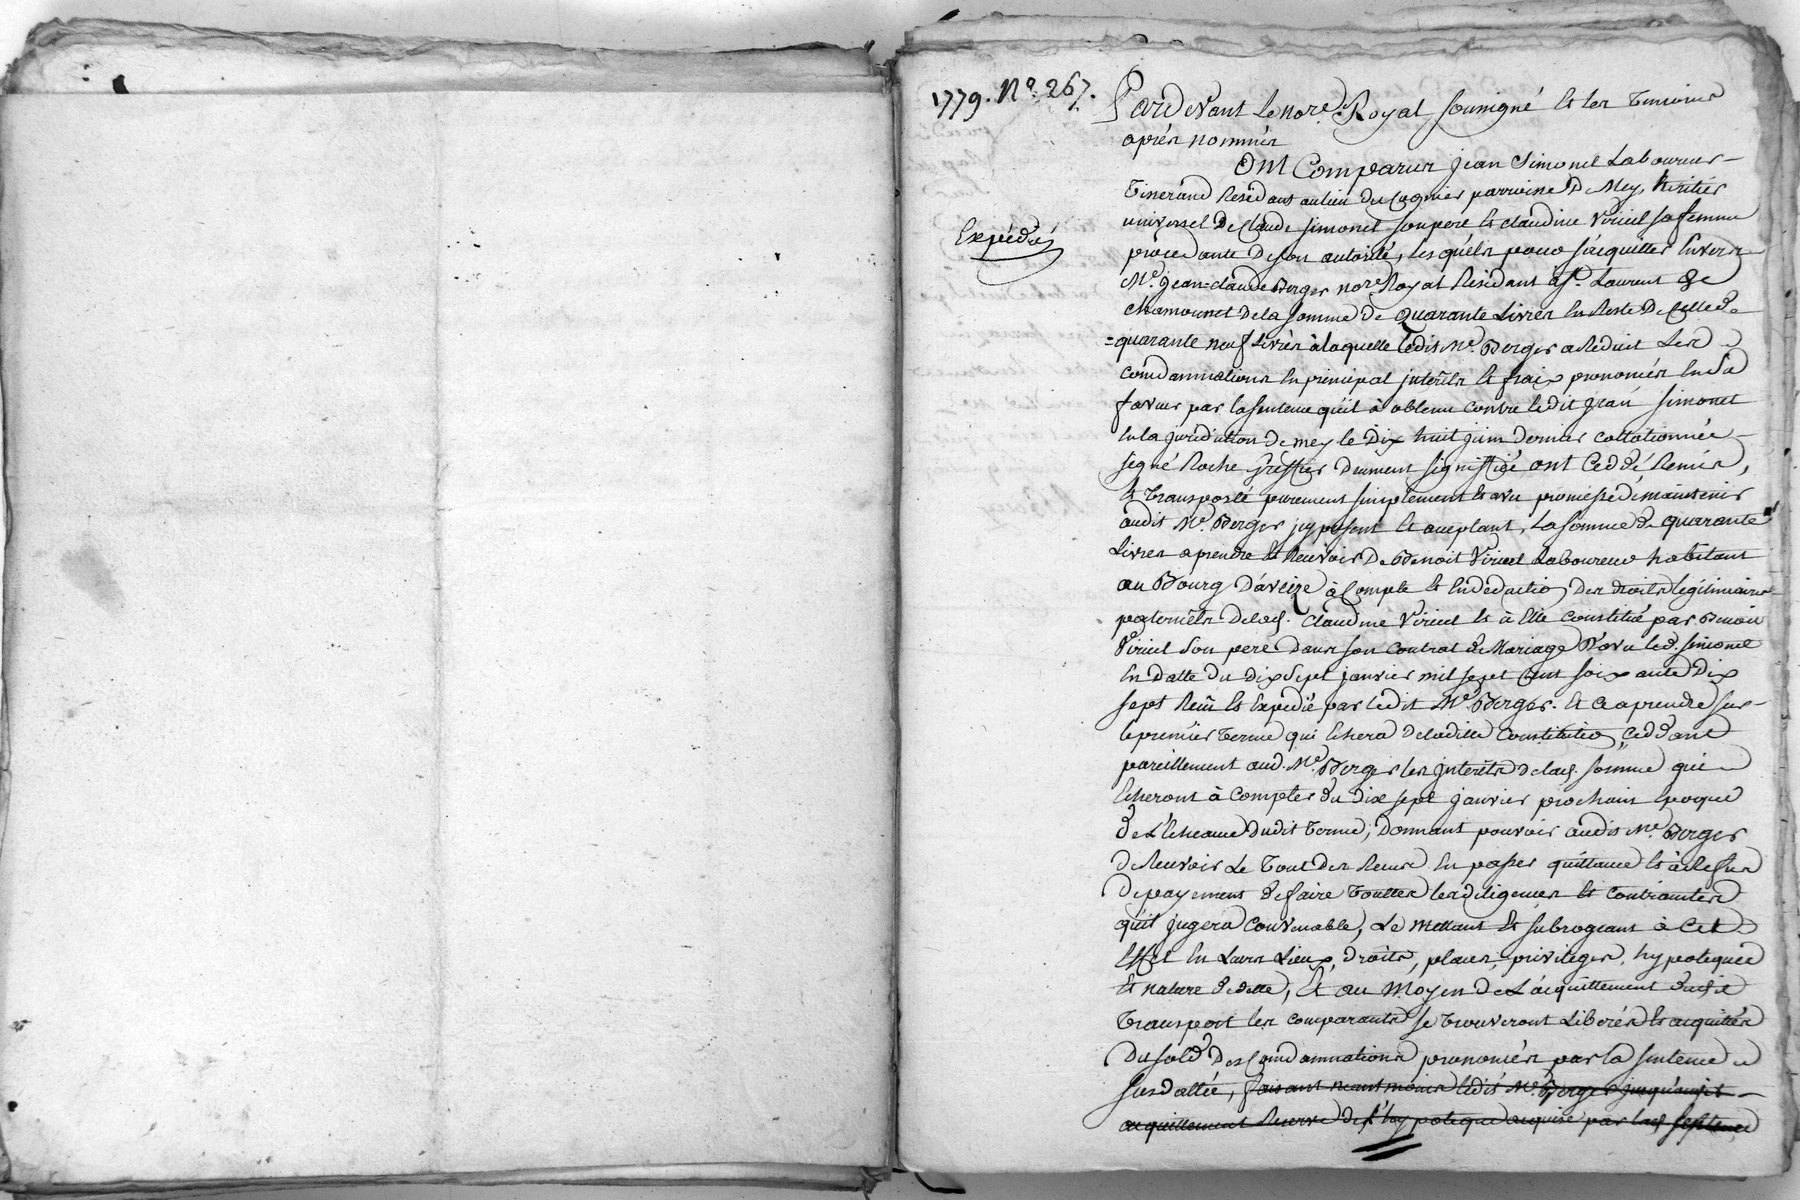 1779. N° 267.
Pardevant le nore. Royal soussigné et les temoins
aprés nommés
Ont Comparus jean Simonet Laboureur
Tisserand Residant au lieu du cognier parroisse de Mey, heritier
universel de Claude Simonet son pere et claudine Viricel sa femme
procedante de son autorité, lesquels pour s'acquitter envers
Expédié
Me. jean-claude Berger nore Royal Residant a St. Laurent de
chamousset de la somme de quarante Livres en Reste de celle de
quarante neuf Livres à laquelle ledit Me. Berger a Reduit les
condamnations en principal interêts et fraix prononcés en sa
faveur par la sentence qu'il à obtenu contre ledit jean Simonet
en la juridiction de mey le dix huit juin dernier collationnée
signé Roche greffier duement signiffiée ont Ceddé Remis,
et transporté purement simplement et avec promesse de maintenir
audit Me. Berger icy present et acceptant, la somme de quarante
Livres a prendre et Recevoir de Benoit Viricel Laboureur habitant
au Bourg d'aveize à Compte et en deduction des droits légitimaires
paternels de lad. Claudine Viricel et à Elle Constitué par Benoit
Viricel son pere dans son Contrat de Mariage d'avec led. Simonet
en datte du dix sept janvier mil sept cent soixante dix
sept Reçu et Expedié par ledit Me Berger. et ce a prendre sur
le premier terme qui Echera de laditte Constitution, Ceddant
pareillement aud. Me. Berger les interêts de lad. somme qui
Echeront à compter du dix sept janvier prochain Epoque
de L'Echeance dudit terme, donnant pouvoir audit Me. Berger
de Recevoir Le tout des Reçus en passer quittance et à deffaut
de payement de faire touttes les diligences et contraintes
qu'il jugera Convenable, Le mettant et subrogeant à Cet
Effet en Leurs Lieux, droits, places, privileges, hypoteques
et nature de dette, et au Moyen de L'acquittement dudit
transport les comparants se trouveront Liberés et acquittés
du solde des Condamnations prononcés par la sentence
susdattée, faisant neantmoins ledit Me. Berger jusqu'audit
acquittement Reserve de l'hypoteque acquise par lad. sentence